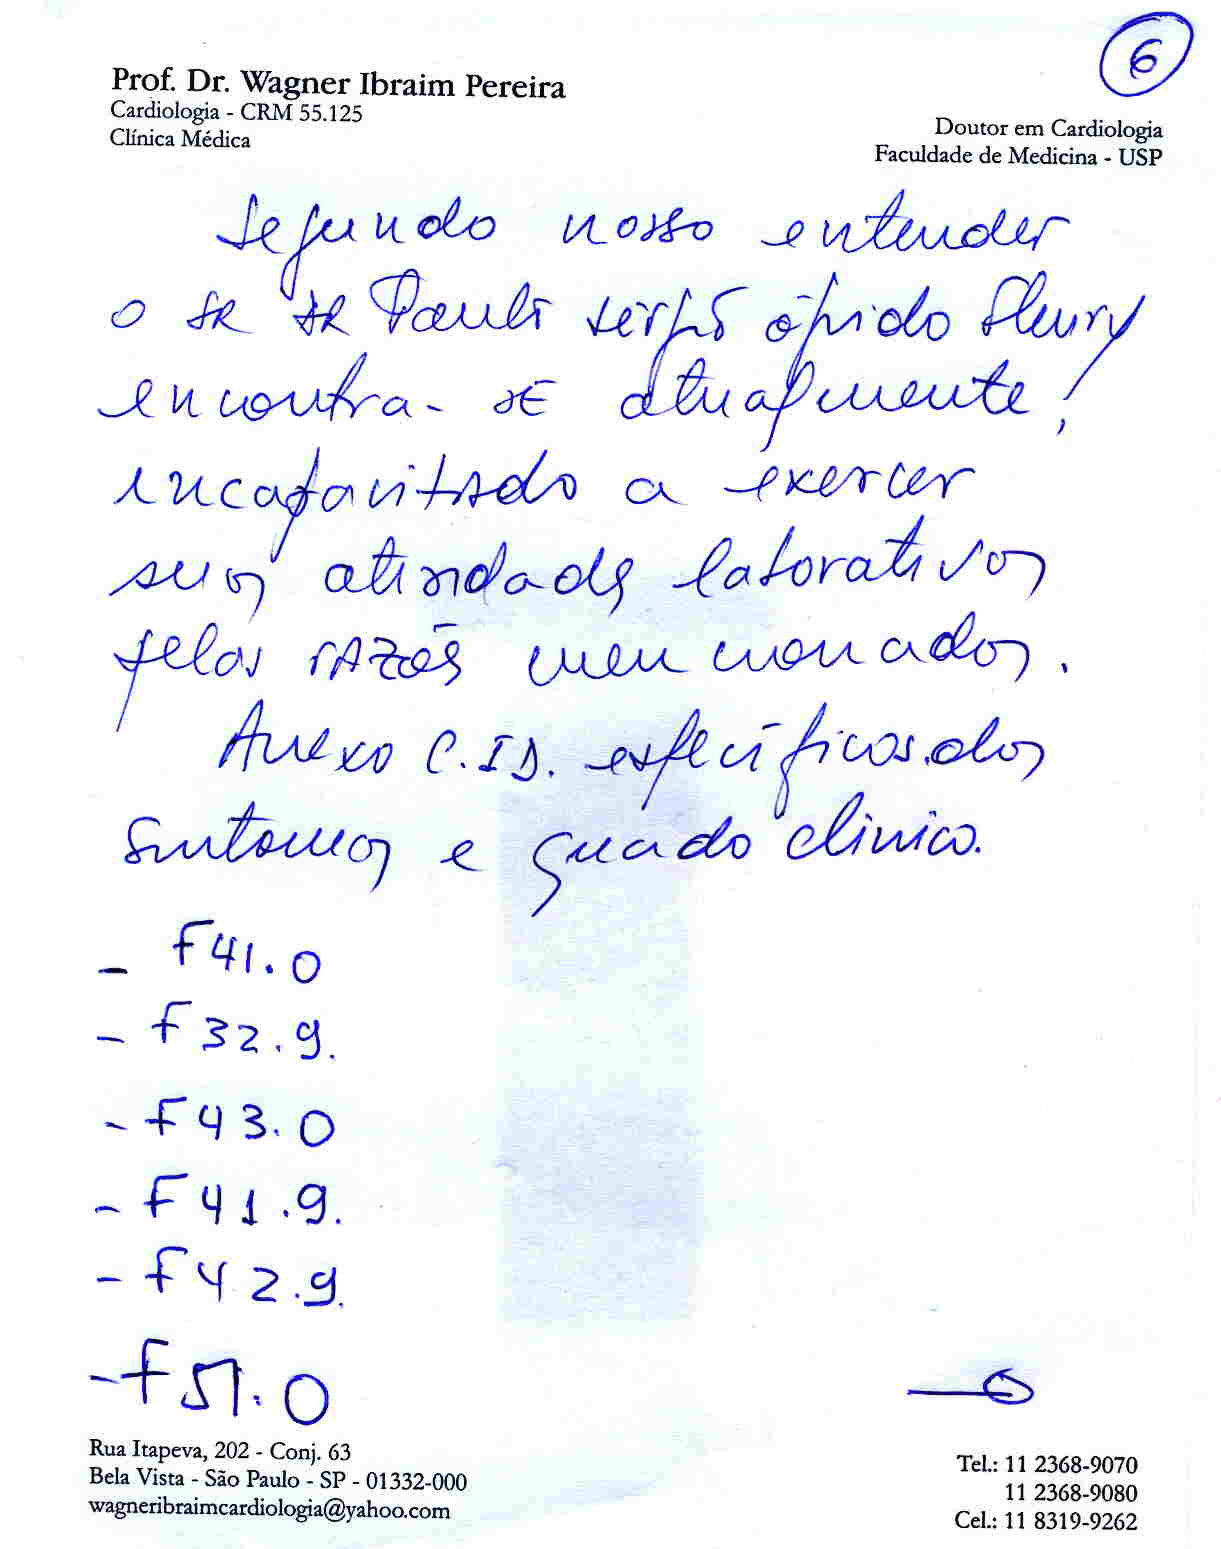 6
Prof. Dr. Wagner Ibraim Pereira
Cardiologia - CRM 55.125
Clínica Médica
Doutor em Cardiologia
Faculdade de Medicina - USP
Segundo nosso entender
o SR Paulo Sérgio Fleury
encontra-se atualmente!
incapacitado a exercer
suas atividades laborativas
pelas razões mencionadas.
Anexo C.I.D. específicos dos
sintomas e quadro clínico.
- F41.0
- F32.9.
- F43.0
- F41.9.
- F42.9.
- F51.0
Rua Itapeva, 202 - Conj. 63
Bela Vista - São Paulo - SP - 01332-000
wagneribraimcardiologia@yahoo.com
Tel.: 11 2368-9070
11 2368-9080
Cel.: 11 8319-9262